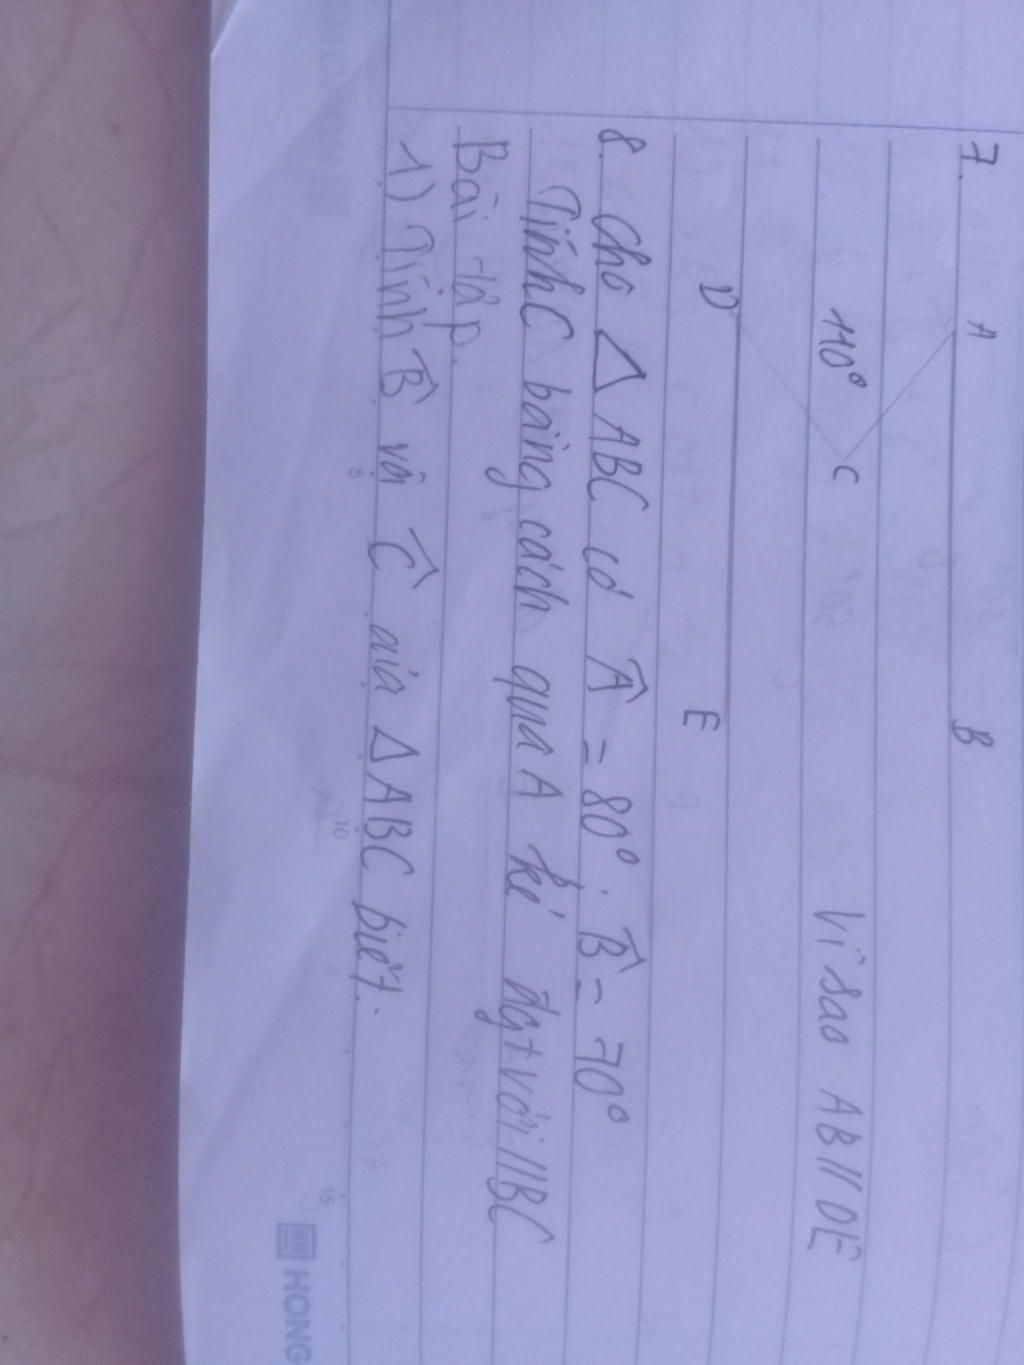 7.
A B
110° C Vì sao AB//DE
D E
8. Cho △ABC có Â = 80°. B̂ = 70°
Tính C bằng cách qua A kẻ đgt với//BC
Bài tập.
1) Tính B̂ và Ĉ của △ABC biết.
5 10 15
HONG